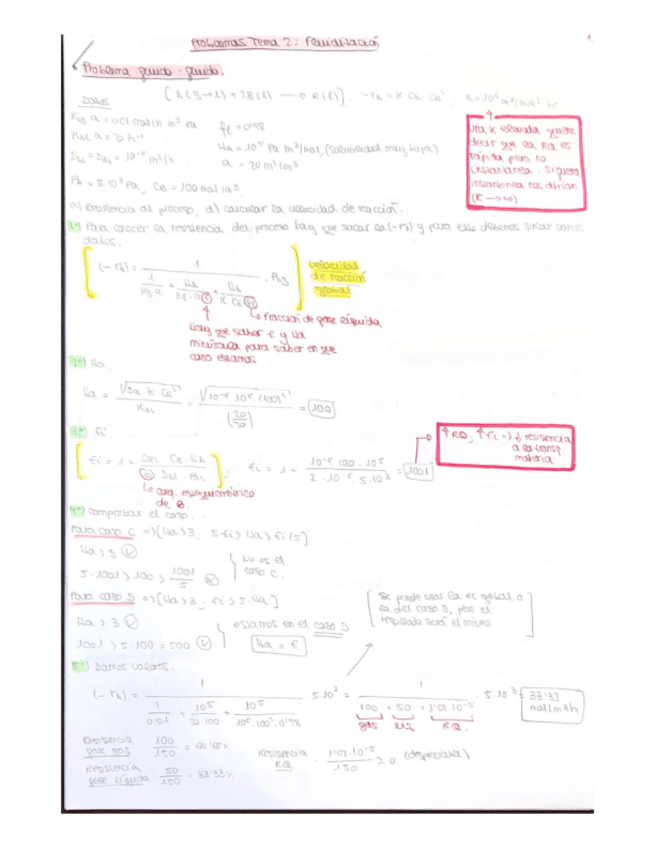 Problemas Tema 2: Fluidización
1.
* Problema fluido-fluido.
Datos
[A(g→l) + 2B(l) → R(l)], -rA = K CA · CB², K = 10⁵ m⁶/mol² hr
KAg a = 0'01 mol/h m³ Pa
fl = 0'98
KAl·a = 20 h⁻¹
HA = 10⁵ Pa m³/mol, (solubilidad muy baja)
DAL = DBL = 10⁻⁶ m²/h
a = 20 m²/m³
PA = 5·10³ Pa, CB = 100 mol/m³
Una K elevada quiere
decir que la RQ es
rápida pero no
instantánea. Si fuera
instantánea nos dirían
(K → ∞)
a) Resistencia al proceso, b) calcular la velocidad de reacción.
1º) Para conocer la resistencia del proceso hay que sacar la (-rA) y para ello debemos sacar varios
datos.
(-rA) = 1 / (1/kg a + HA/(KL·a·E) + HA/(K CB² fL)) · PAg
velocidad
de reacción
global
fracción de fase líquida
Hay que saber E y Ha
minúscula para saber en que
caso estamos
2º) Ha.
Ha = √(DA·K·CB²) / KAL = √(10⁻⁶ 10⁵ (100)²) / (20/20) = 100
3º) Ei
Ei = 1 + DBL · CB · HA / (b DAL · PAi); Ei = 1 + 10⁻⁶ 100 · 10⁵ / (2 · 10⁻⁶ · 5·10³) = 1001
↑RQ, ↑Ei => ↓ resistencia
a la transp.
materia
coeq. estequiométrico
de B.
4º) comprobar el caso...
Para caso C => [Ha > 3, 5·Ei > Ha > Ei/5]
Ha > 3
5·1001 > 100 > 1001/5
No es el
caso C.
Para caso D => [Ha > 3, Ei > 5·Ha]
Ha > 3
1001 > 5·100 = 500
estamos en el caso D
Ha = E
[Se puede usar la ec global o
la del caso D, pero el
resultado será el mismo]
5º) Damos valores.
(-rA) = 1 / (1/0'01 + 10⁵/(20·100) + 10⁵/(10⁵·100²·0'98)) · 5·10³ = 1 / (100 + 50 + 1'02·10⁻⁵) · 5·10³ = 33'33 mol/m³h
gas liq RQ.
Resistencia fase gas 100/150 = 66'66%
Resistencia RQ 1'02·10⁻⁵/150 ≃ 0 (despreciable)
Resistencia fase líquida · 50/150 = 33'33%